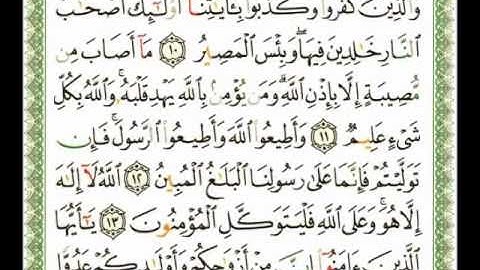 وَالَّذِينَ كَفَرُوا۟ وَكَذَّبُوا۟ بِـَٔايَٰتِنَآ أُو۟لَٰٓئِكَ أَصْحَٰبُ
ٱلنَّارِ خَٰلِدِينَ فِيهَا ۖ وَبِئْسَ ٱلْمَصِيرُ ١٠ مَآ أَصَابَ مِن
مُّصِيبَةٍ إِلَّا بِإِذْنِ ٱللَّهِ ۗ وَمَن يُؤْمِنۢ بِٱللَّهِ يَهْدِ قَلْبَهُۥ ۚ وَٱللَّهُ بِكُلِّ
شَىْءٍ عَلِيمٌ ١١ وَأَطِيعُوا۟ ٱللَّهَ وَأَطِيعُوا۟ ٱلرَّسُولَ ۚ فَإِن
تَوَلَّيْتُمْ فَإِنَّمَا عَلَىٰ رَسُولِنَا ٱلْبَلَٰغُ ٱلْمُبِينُ ١٢ ٱللَّهُ لَآ إِلَٰهَ
إِلَّا هُوَ ۚ وَعَلَى ٱللَّهِ فَلْيَتَوَكَّلِ ٱلْمُؤْمِنُونَ ١٣ يَٰٓأَيُّهَا
ٱلَّذِينَ ءَامَنُوٓا۟ إِنَّ مِنْ أَزْوَٰجِكُمْ وَأَوْلَٰدِكُمْ عَدُوًّا